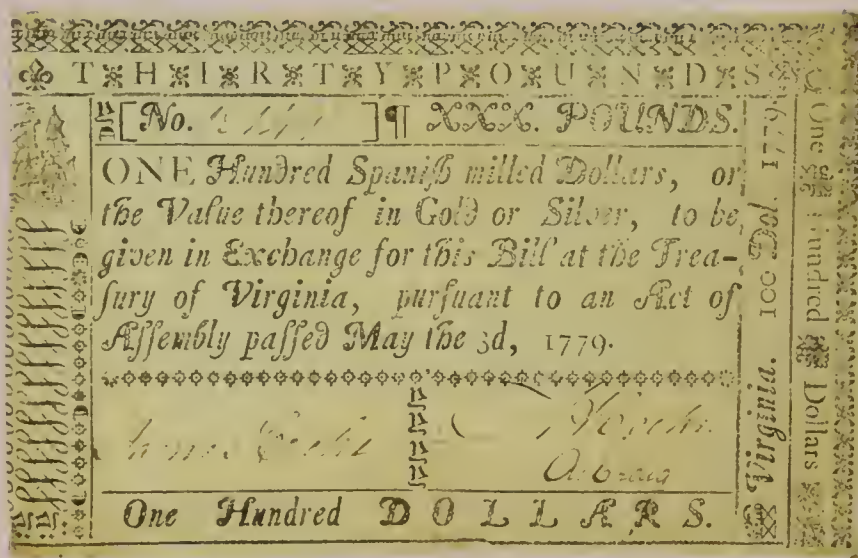 THIRTY POUNDS
[No. ] ¶ XXX. POUNDS.
ONE Hundred Spaniſh milled Dollars, or
the Value thereof in Gold or Silver, to be
given in Exchange for this Bill at the Trea-
ſury of Virginia, purſuant to an Act of
Aſſembly paſſed May the 3d, 1779.
One Hundred DOLLARS.
Virginia. 100 Dol. 1779.
One Hundred Dollars